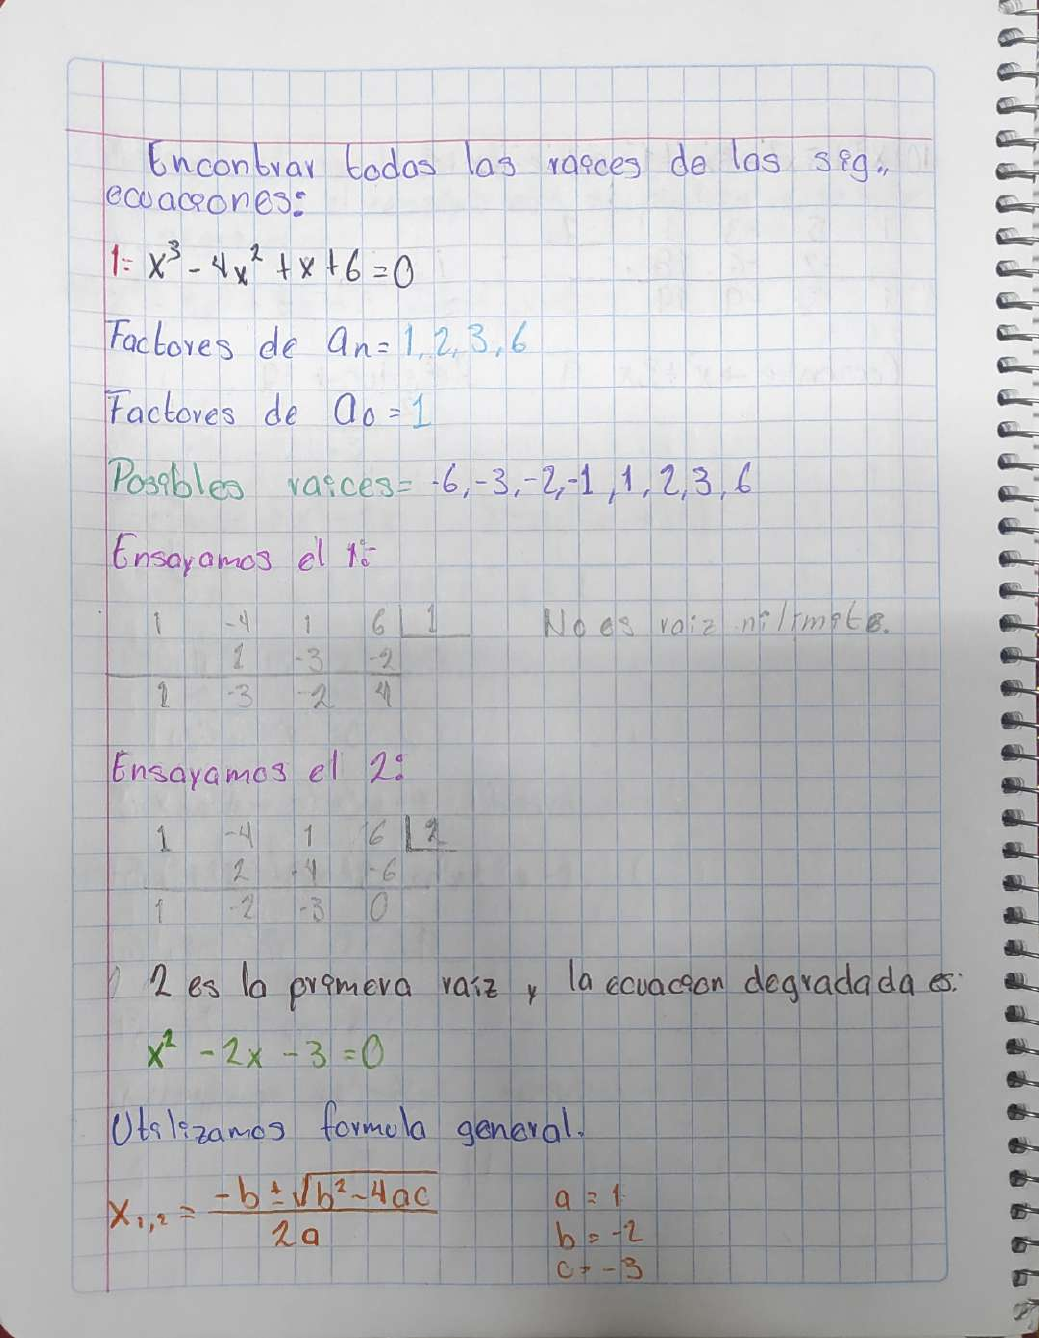 Encontrar todas las raices de las sig.,
ecuaciones:
1= x³ - 4x² + x + 6 = 0
Factores de an = 1, 2, 3, 6
Factores de a0 = 1
Posibles raices = -6, -3, -2, -1, 1, 2, 3, 6
Ensayamos el 1:
1 -4 1 6 | 1 No es raiz ni limite.
1 -3 -2
1 -3 -2 4
Ensayamos el 2:
1 -4 1 6 | 2
2 -4 -6
1 -2 -3 0
2 es la primera raiz y la ecuacion degradada es:
x² - 2x - 3 = 0
Utilizamos formula general.
x1,2 = -b ± √b² - 4ac / 2a
a = 1
b = -2
c = -3